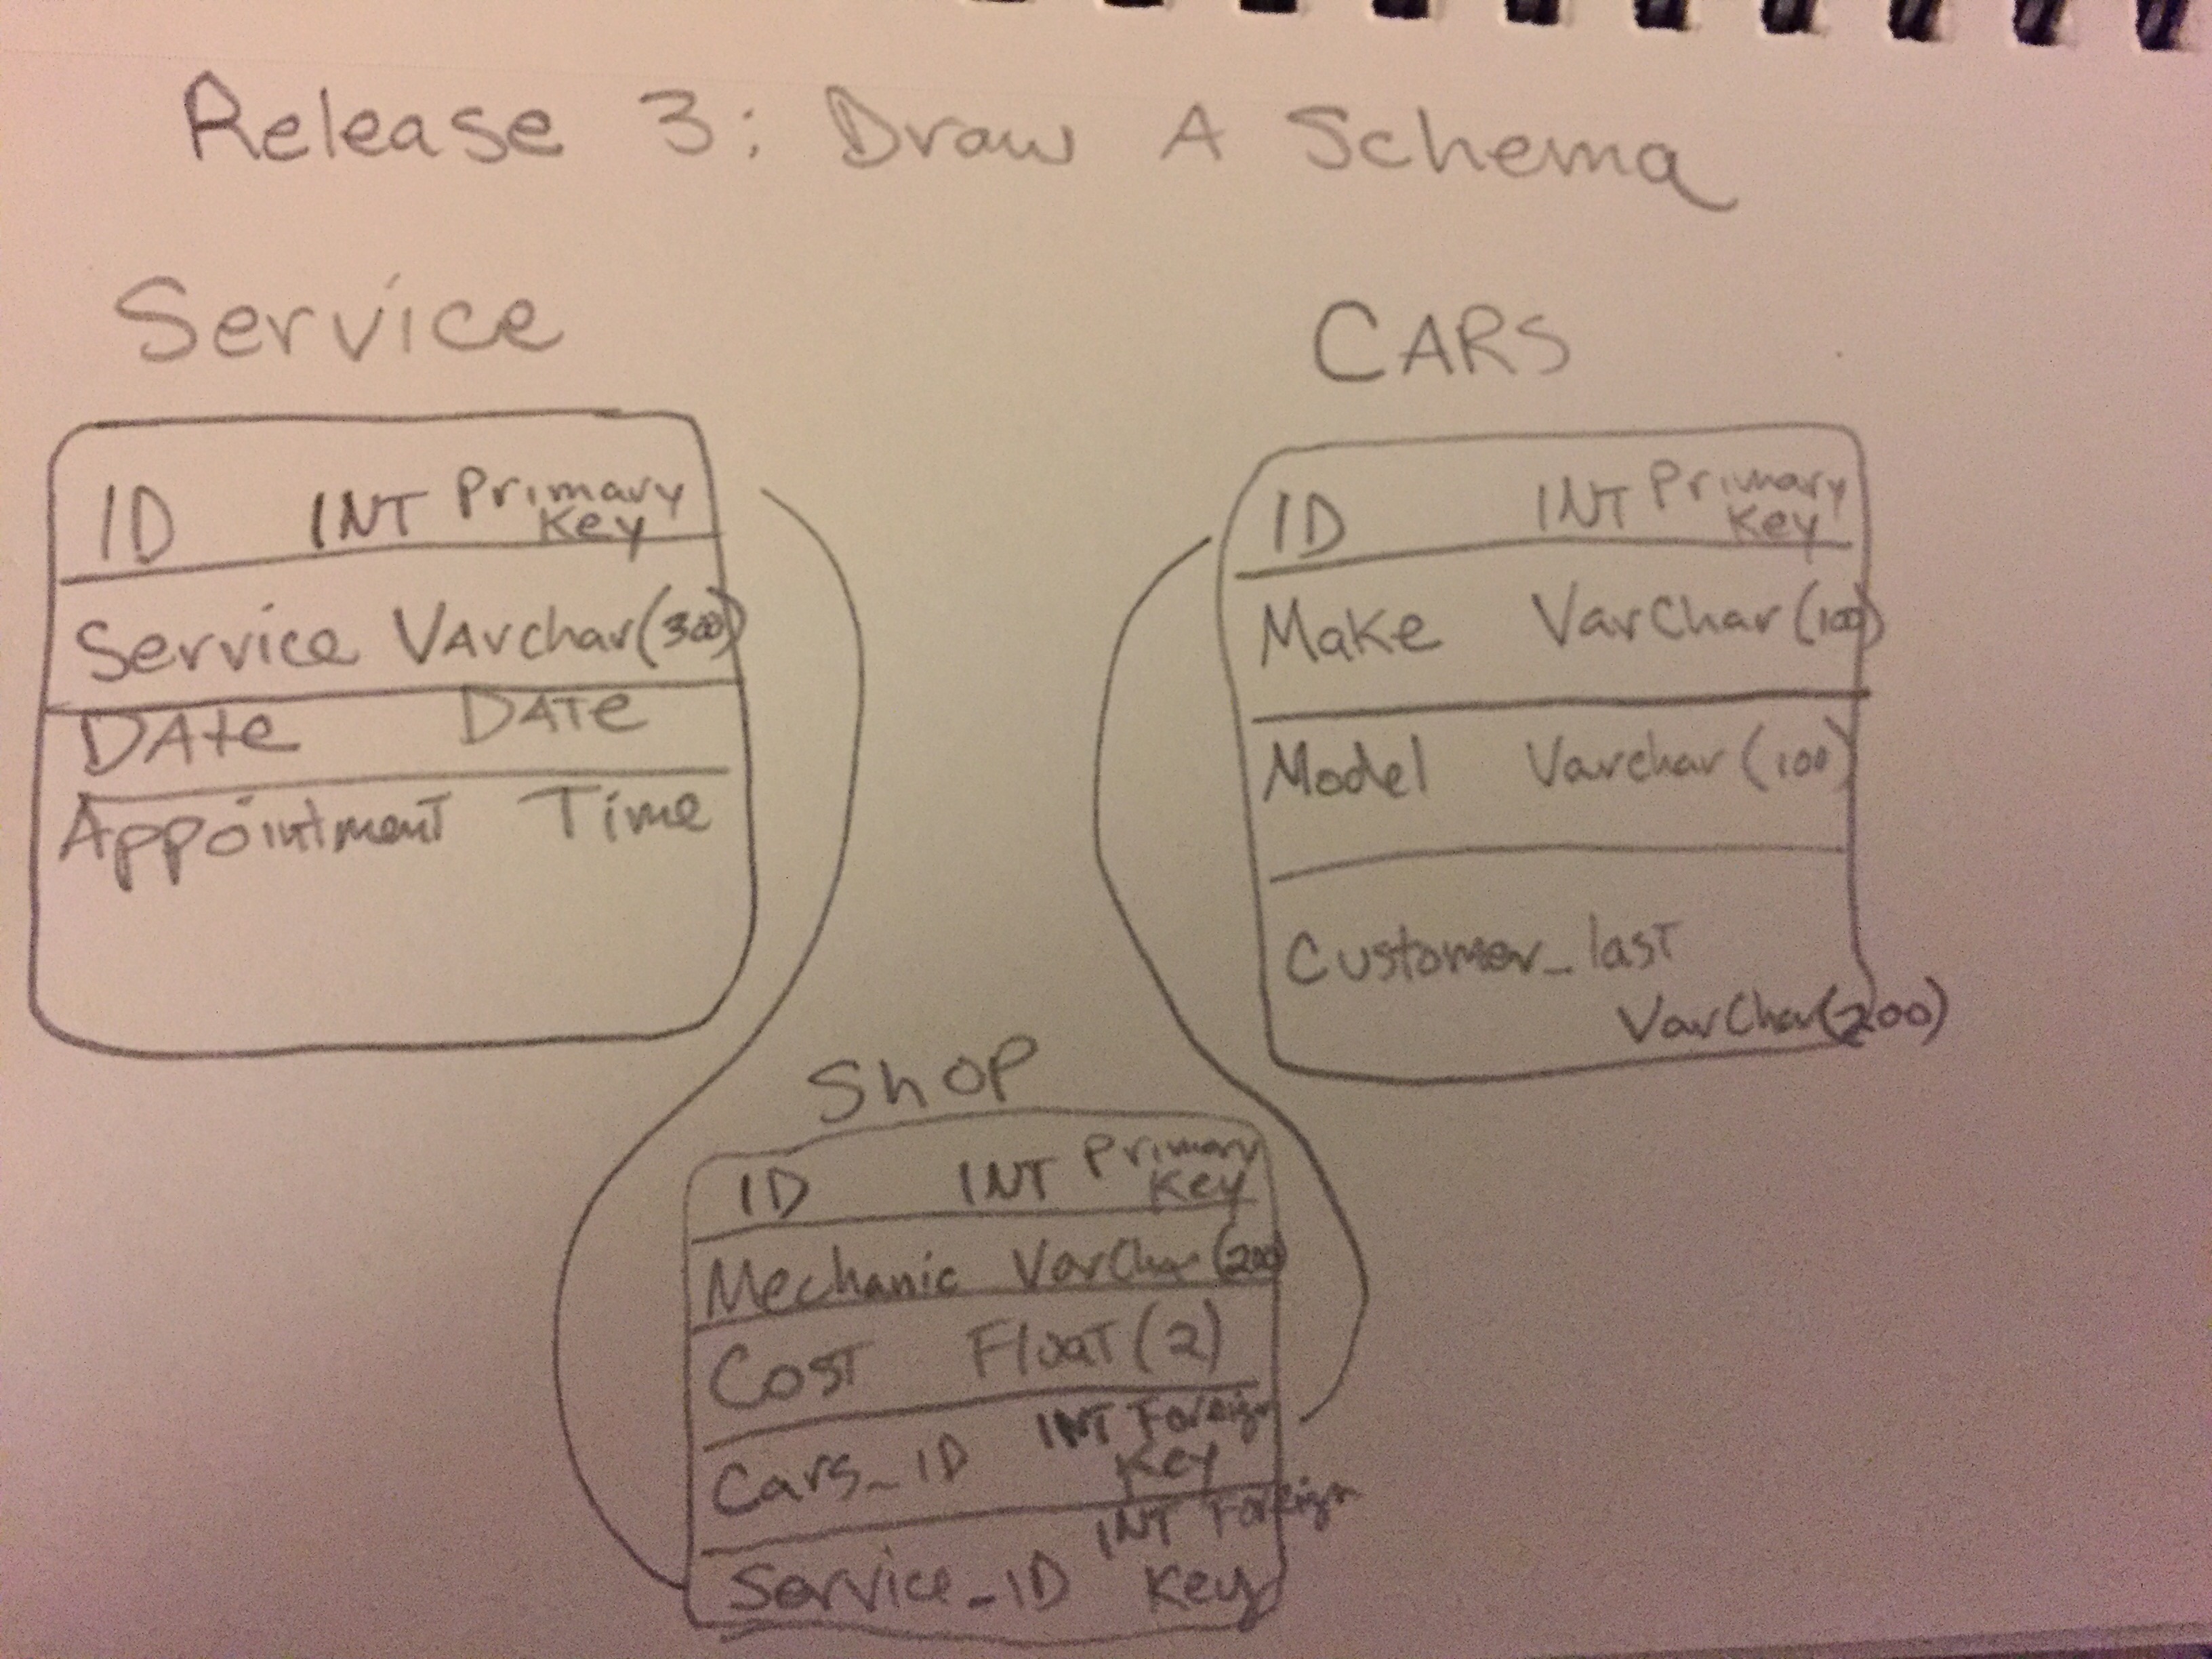 Release 3: Draw A Schema
Service
ID INT Primary Key
Service VArchar(300)
DAte DATe
Appointment Time
CARS
ID INT Primary Key
Make VarChar(100)
Model Varchar(100)
Customer_last
VarChar(200)
ShOP
ID INT Primary Key
Mechanic VarChar(200)
Cost Float(2)
Cars_ID INT Foreign Key
Service_ID INT Foreign Key